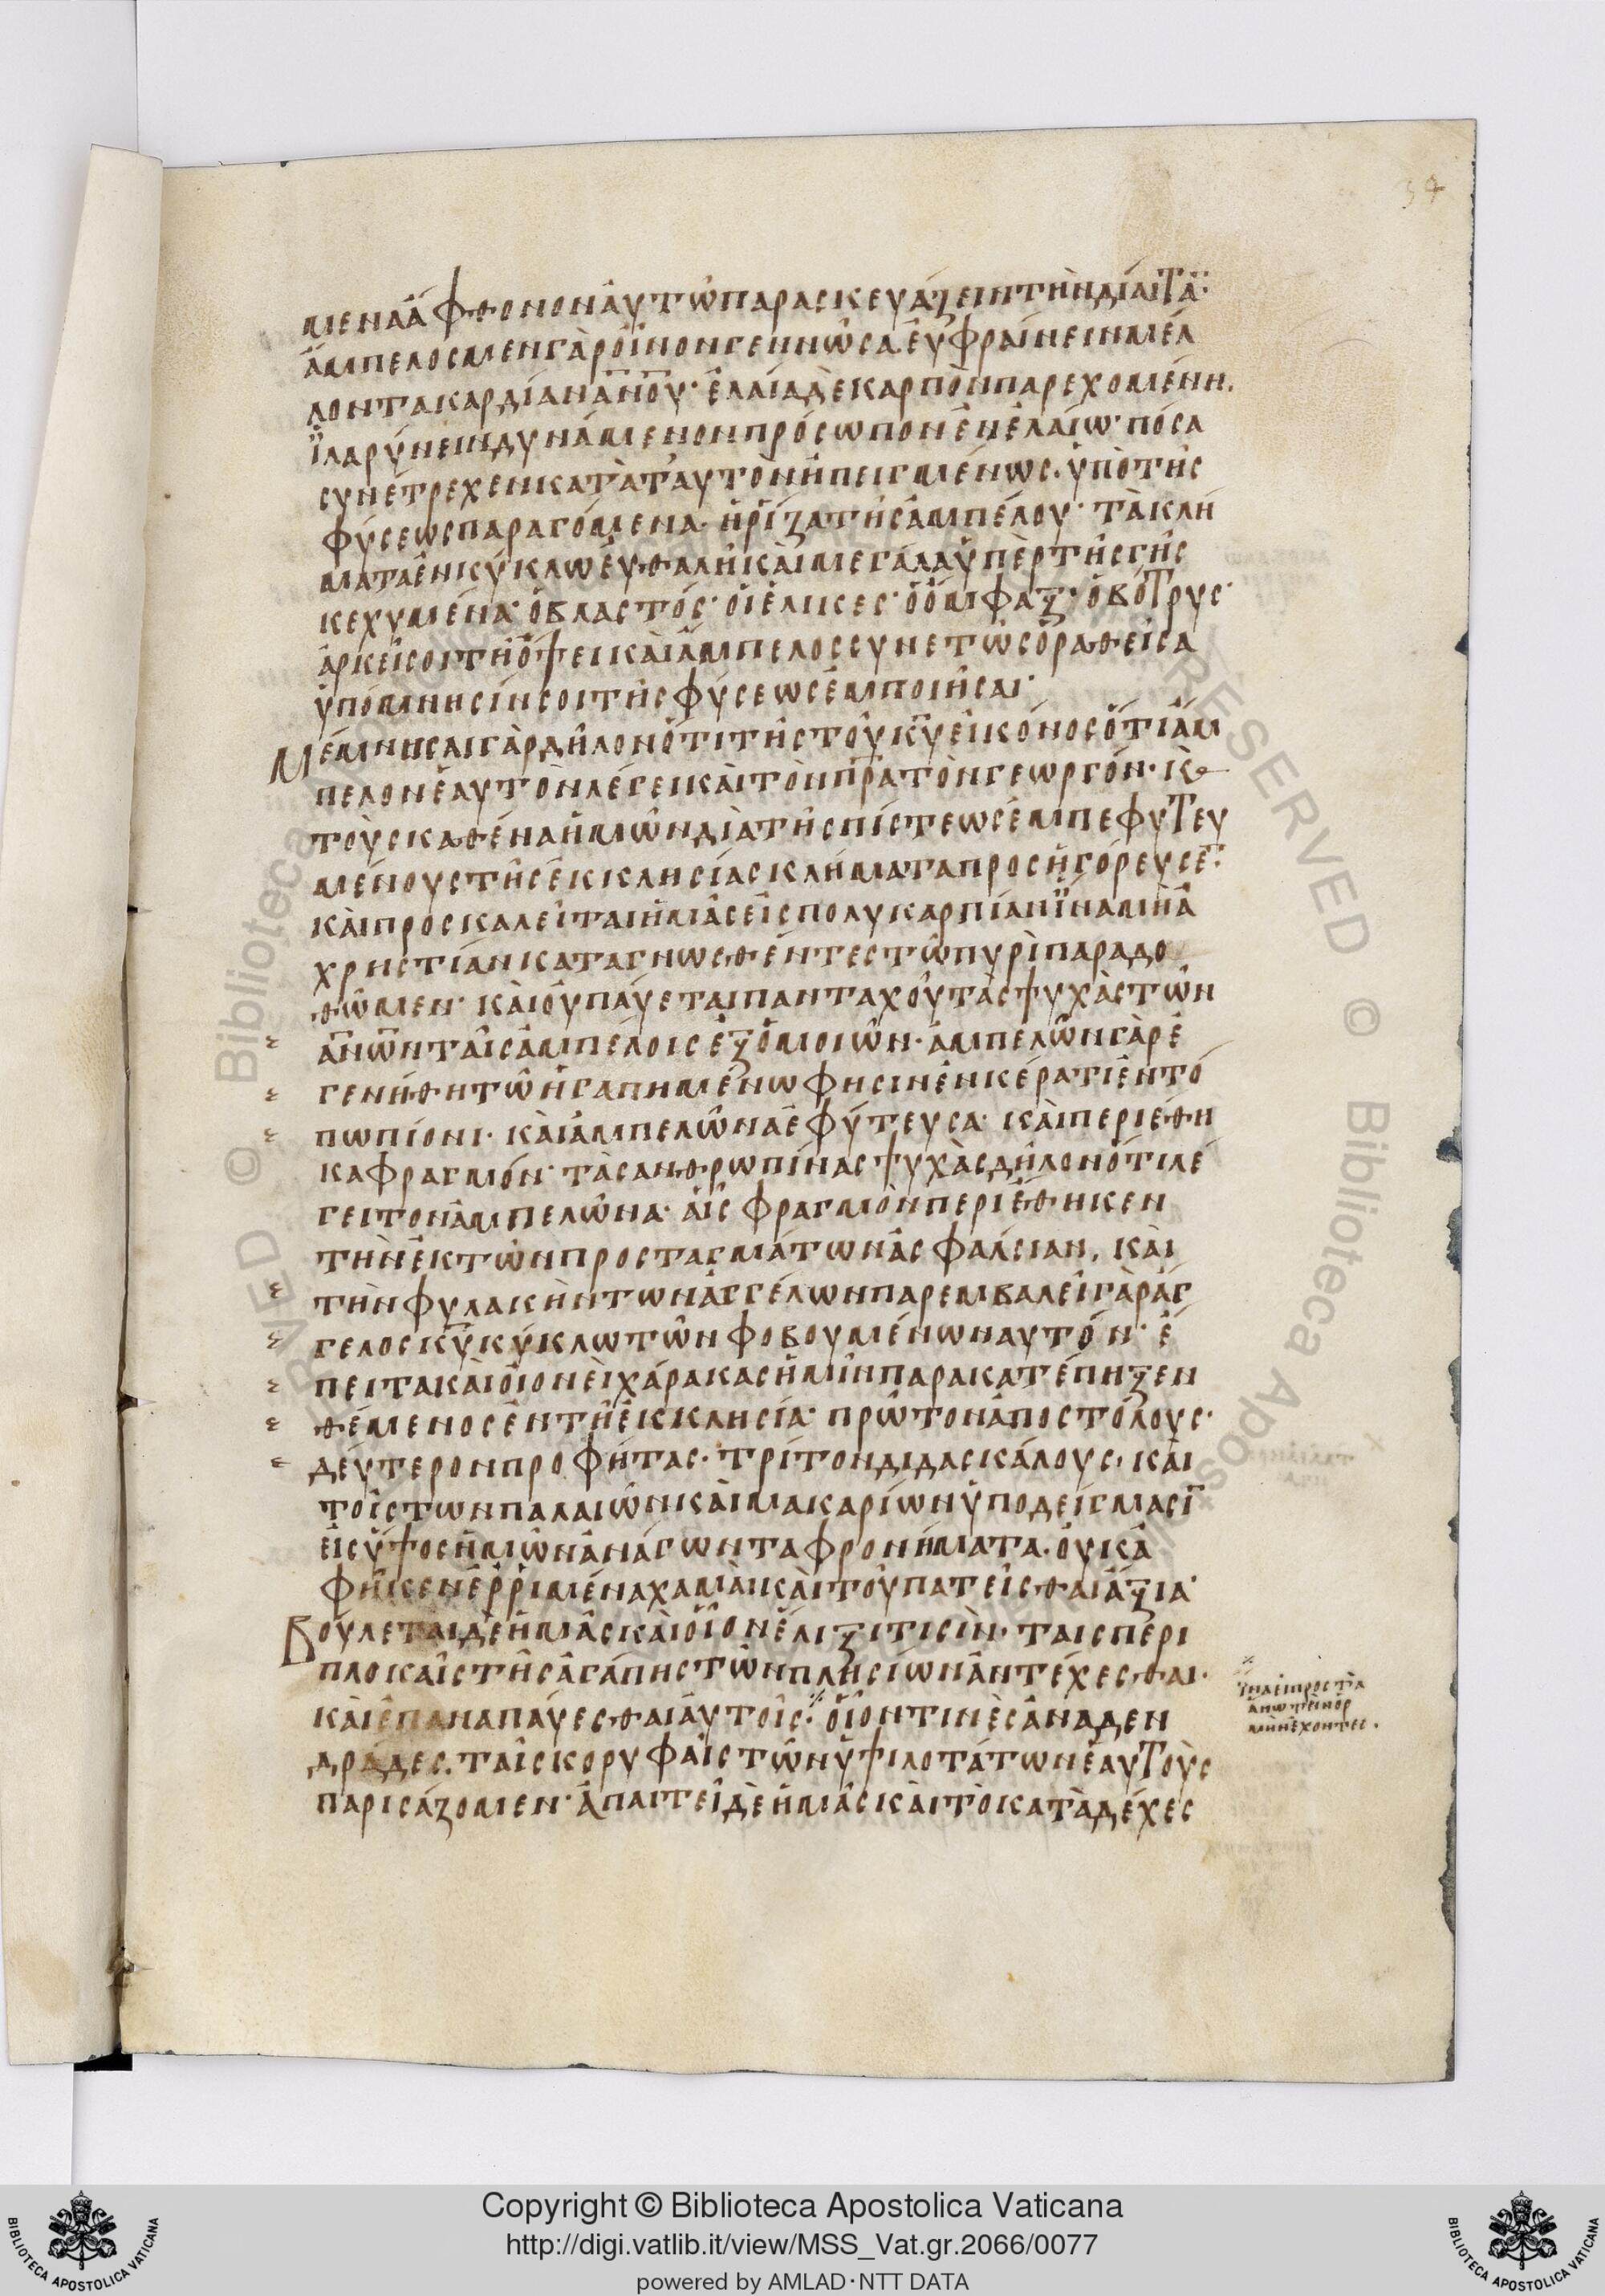 34
μενα ἄφθονον αὐτῷ παρασκευάζειν τὴν δίαιτα̅·
ἄμπελος μὲν γὰρ οἶνον γεννῶσα. εὐφραίνειν μέλ
λοντα καρδίαν ἀ̅ν̅ο̅υ̅· ἐλαία δὲ καρπὸν παρεχομένη.
ἱλαρύνειν δυνάμενον πρόσωπον ἐν ἐλαίῳ· πόσα
συνέτρεχεν κατὰ ταὐτὸν ἠπειγμένως. ὑπὸ τῆς
φύσεως παραγόμενα· ἡ ῥίζα τῆς ἀμπέλου· τὰ κλή
ματα ἐν κύκλῳ εὐθαλῆ καὶ μεγάλα ὑπὲρ τῆς γῆς
κεχυμένα· ὁ βλαστός· οἱ ἕλικες· ὁ ὄμφαξ· ὁ βότρυς·
ἀρκεῖ σοι τῇ ὄψει καὶ ἄμπελος συνετῶς ὁραθεῖσα
ὑπόμνησίν σοι τῆς φύσεως ἐμποιῆσαι·
Μέμνησαι γὰρ δηλονότι τῆς τοῦ κ̅υ̅ εἰκόνος ὅτι ἄμ
πελον ἑαυτὸν λέγει καὶ τὸν π̅ρ̅α̅ τὸν γεωργόν· κ̀
τοὺς καθένα ἡμῶν διὰ τῆς πίστεως ἐμπεφυτευ
μένους τῆς ἐκκλησίας κλήματα προσηγόρευσε̅·
καὶ προσκαλεῖται ἡμᾶς εἰς πολυκαρπίαν ἵνα μὴ ἀ
χρηστίαν καταγνωσθέντες τῷ πυρὶ παραδο
θῶμεν· καὶ οὐ παύεται πανταχοῦ τὰς ψυχὰς τῶν
ἀ̅ν̅ω̅ν̅ ταῖς ἀμπέλοις ἐξομοιῶν· ἀμπελὼν γὰρ ἐ
γενήθη τῷ ἠγαπημένῳ φησὶν ἐν κέρατι ἐν τό
πῳ πίονι· καὶ ἀμπελῶνα ἐφύτευσα· καὶ περιέθη
κα φραγμόν· τὰς ἀνθρωπίνας ψυχὰς δηλονότι λέ
γει τὸν ἀμπελῶνα· αἷς φραγμὸν περιέθηκεν
τὴν ἐκ τῶν προσταγμάτων ἀσφάλειαν, καὶ
τὴν φυλακὴν τῶν ἀγγέλων παρεμβαλεῖ γὰρ ἄγ
γελος κ̅υ̅ κύκλῳ τῶν φοβουμένων αὐτόν· ἔ
πειτα καὶ οἱονεὶ χάρακας ἡμῖν παρακατέπηξεν
θέμενος ἐν τῇ ἐκκλησίᾳ· πρῶτον ἀποστόλους·
δεύτερον προφήτας· τρίτον διδασκάλους, καὶ
τοῖς τῶν παλαιῶν καὶ μακαρίων ὑποδείγμασι̅
εἰς ὕψος ἡμῶν ἀνάγων τὰ φρονήματα. οὐκ ἀ
φῆκεν ἐρριμένα χαμαὶ καὶ τοῦ πατεῖσθαι ἄξια·
Βούλεται δὲ ἡμᾶς καὶ οἷον ἕλιξί τισιν· ταῖς περι
πλοκαῖς τῆς ἀγάπης τῶν πλησίων ἀντέχεσθαι·
καὶ ἐπαναπαύεσθαι αὐτοῖς·̸ οἷόν τινες ἀναδεν
δράδες. ταῖς κορυφαῖς τῶν ὑψηλοτάτων ἑαυτοὺς
παρισάζομεν· ἀπαιτεῖ δὲ ἡμᾶς καὶ τὸ καταδέχεσ
ἵνα εἰ πρὸς τὰ
ἄνω τὴν ὁρ
μὴν ἔχοντες.
Copyright © Biblioteca Apostolica Vaticana
http://digi.vatlib.it/view/MSS_Vat.gr.2066/0077
powered by AMLAD·NTT DATA
BIBLIOTECA APOSTOLICA VATICANA
BIBLIOTECA APOSTOLICA VATICANA